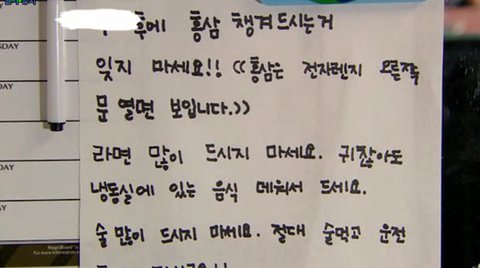 후에 홍삼 챙겨드시는거
잊지 마세요!! <<홍삼은 전자렌지 오른쪽
문 열면 보입니다.>>
라면 많이 드시지 마세요. 귀찮아도
냉동실에 있는 음식 데워서 드세요.
술 많이 드시지 마세요. 절대 술먹고 운전
DAY
DAY
DAY
MagicBoard
For more information